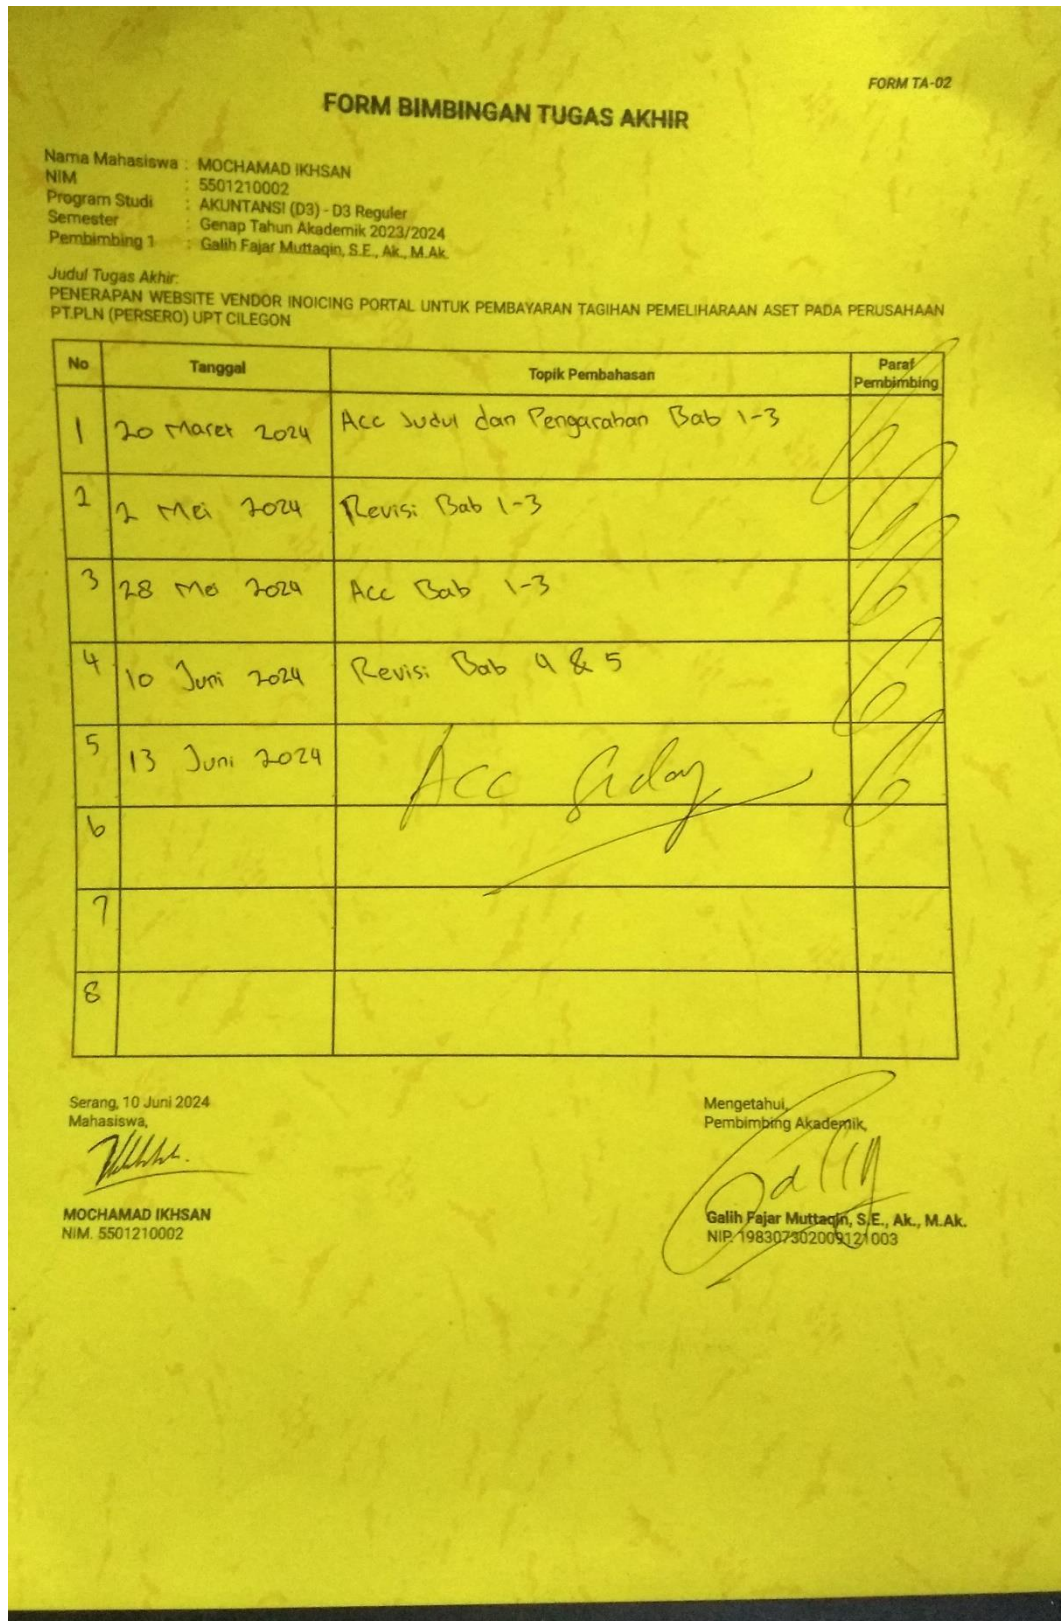 FORM TA-02
FORM BIMBINGAN TUGAS AKHIR
Nama Mahasiswa : MOCHAMAD IKHSAN
NIM : 5501210002
Program Studi : AKUNTANSI (D3) - D3 Reguler
Semester : Genap Tahun Akademik 2023/2024
Pembimbing 1 : Galih Fajar Muttaqin, S.E., Ak., M.Ak.
Judul Tugas Akhir:
PENERAPAN WEBSITE VENDOR INOICING PORTAL UNTUK PEMBAYARAN TAGIHAN PEMELIHARAAN ASET PADA PERUSAHAAN
PT.PLN (PERSERO) UPT CILEGON
No Tanggal Topik Pembahasan Paraf Pembimbing
1 20 Maret 2024 Acc Judul dan Pengarahan Bab 1-3
2 2 Mei 2024 Revisi Bab 1-3
3 28 Mei 2024 Acc Bab 1-3
4 10 Juni 2024 Revisi Bab 4 & 5
5 13 Juni 2024 Acc Sidang
6
7
8
Serang, 10 Juni 2024
Mahasiswa,
MOCHAMAD IKHSAN
NIM. 5501210002
Mengetahui,
Pembimbing Akademik,
Galih Fajar Muttaqin, S.E., Ak., M.Ak.
NIP. 198307302009121003